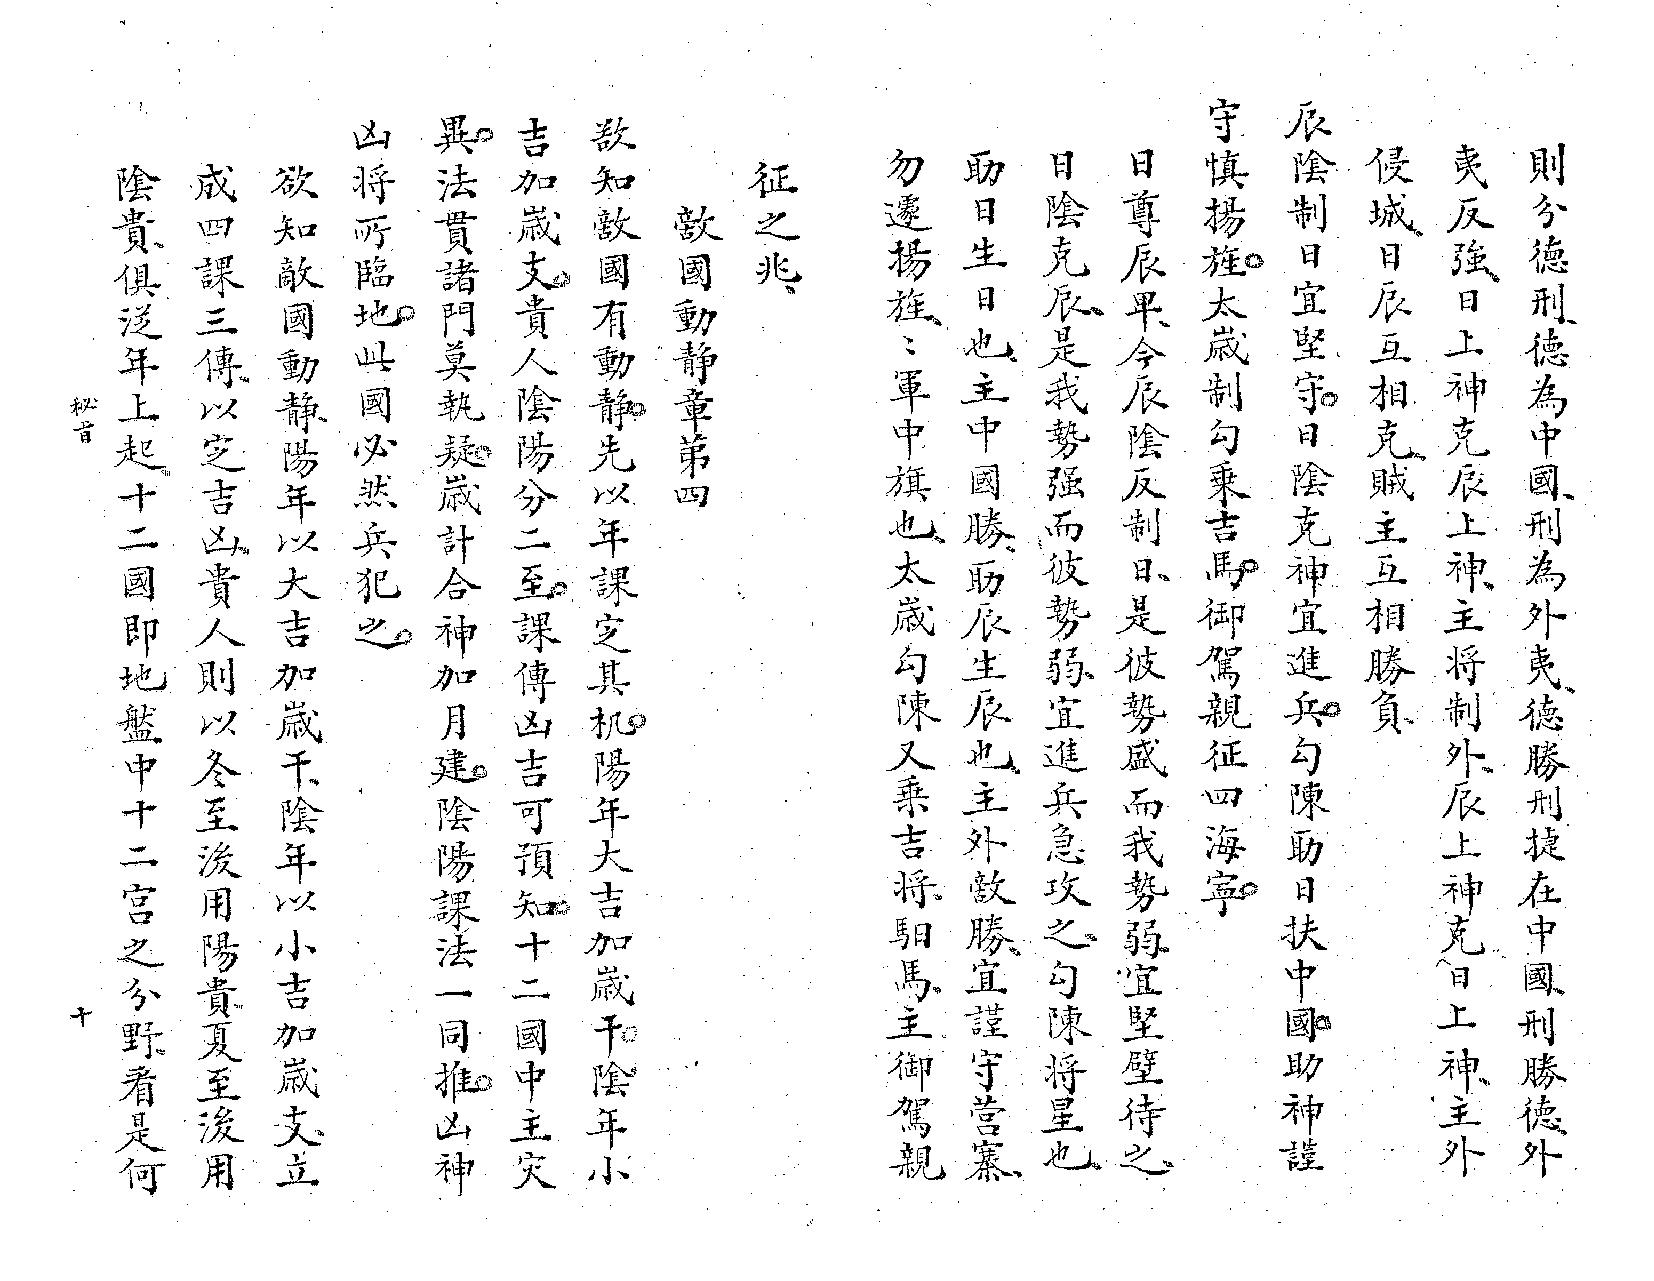 則分德刑、德為中國、刑為外夷、德勝刑捷在中國、刑勝德、外
夷反強、日上神克辰上神、主將制外、辰上神克日上神、主外
侵城、日辰互相克、賊主互相勝負、
辰陰制日宜堅守○日陰克神宜進兵○勾陳助日扶中國○助神謹
守慎揚旌○太歲制勾乘吉馬○御駕親征四海寧○
日尊辰卑、今辰陰反制日、是彼勢盛而我勢弱、宜堅壁待之、
日陰克辰、是我勢强而彼勢弱、宜進兵急攻之、勾陳將星也、
助日生日也、主中國勝、助辰生辰也、主外敵勝、宜謹守營寨、
勿遽揚旌、〻軍中旗也、太歲勾陳又乘吉將、馹馬、主御駕親
征之兆、
敵國動靜章第四
欲知敵國有動靜○先以年課定其机○陽年大吉加歲干○陰年小
吉加歲支○貴人陰陽分二至○課傳凶吉可預知○十二國中主灾
異○法貫諸門莫執疑○歲計合神加月建○陰陽課法一同推○凶神
凶將所臨地○此國必然兵犯之○
欲知敵國動靜、陽年以大吉加歲干、陰年以小吉加歲支、立
成四課三傳、以定吉凶、貴人則以冬至後用陽貴、夏至後用
陰貴、俱從年上起、十二國即地盤中十二宮之分野、看是何
秘首
十